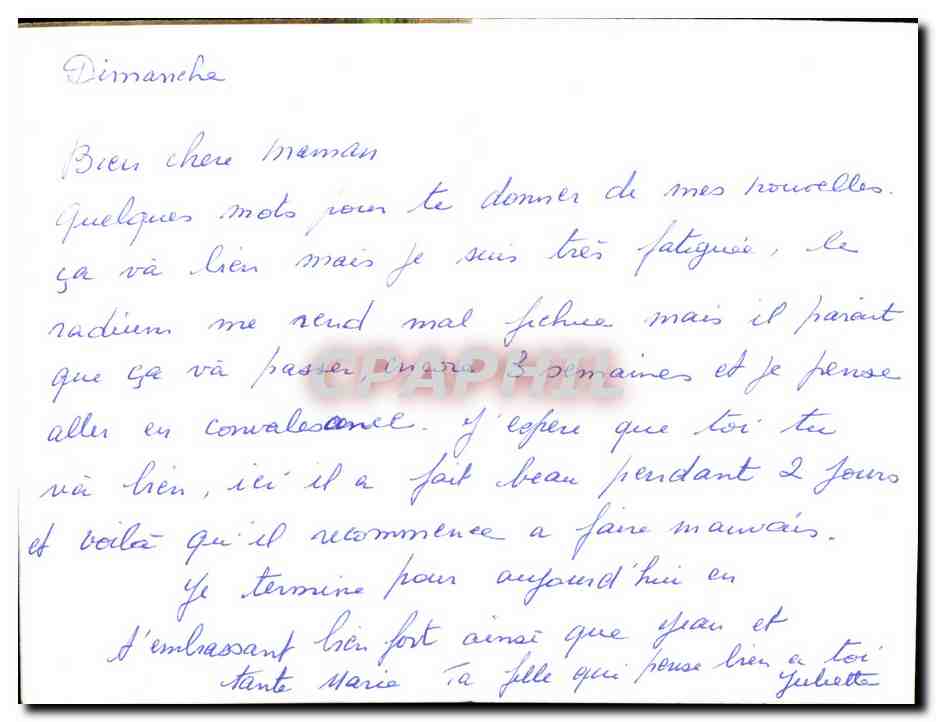 Dimanche
Bien chere maman
Quelques mots pour te donner de mes nouvelles.
ça và bien mais je suis très fatiguée, le
radium me rend mal fichue mais il parait
que ça và passer, encore 3 semaines et je pense
CPAPHIL
aller en convalescence. J'espere que toi tu
và bien, ici il a fait beau pendant 2 jours
et voilà qu'il recommence a faire mauvais.
Je termine pour aujourd'hui en
t'embrassant bien fort ainsi que Jean et
tante Marie Ta fille qui pense bien a toi
Juliette